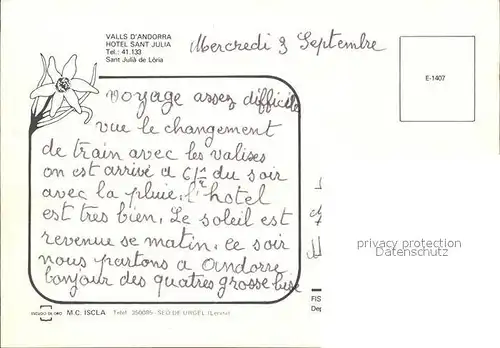 VALLS D'ANDORRA
HOTEL SANT JULIA
Tel.: 41.133
Sant Julià de Lòria
Mercredi 3 Septembre
E-1407
voyage assez difficile
vue le changement
de train avec les valises
on est arrivé a 6h 1/2 du soir
avec la pluie, l'hotel
est tres bien, Le soleil est
revenue se matin, ce soir
nous partons a Andorre
bonjour des quatres grosse bise
privacy protection
Datenschutz
FIS
Dep
ESCUDO DE ORO M.C. ISCLA Telef. 350085 SEO DE URGEL (Lérida)